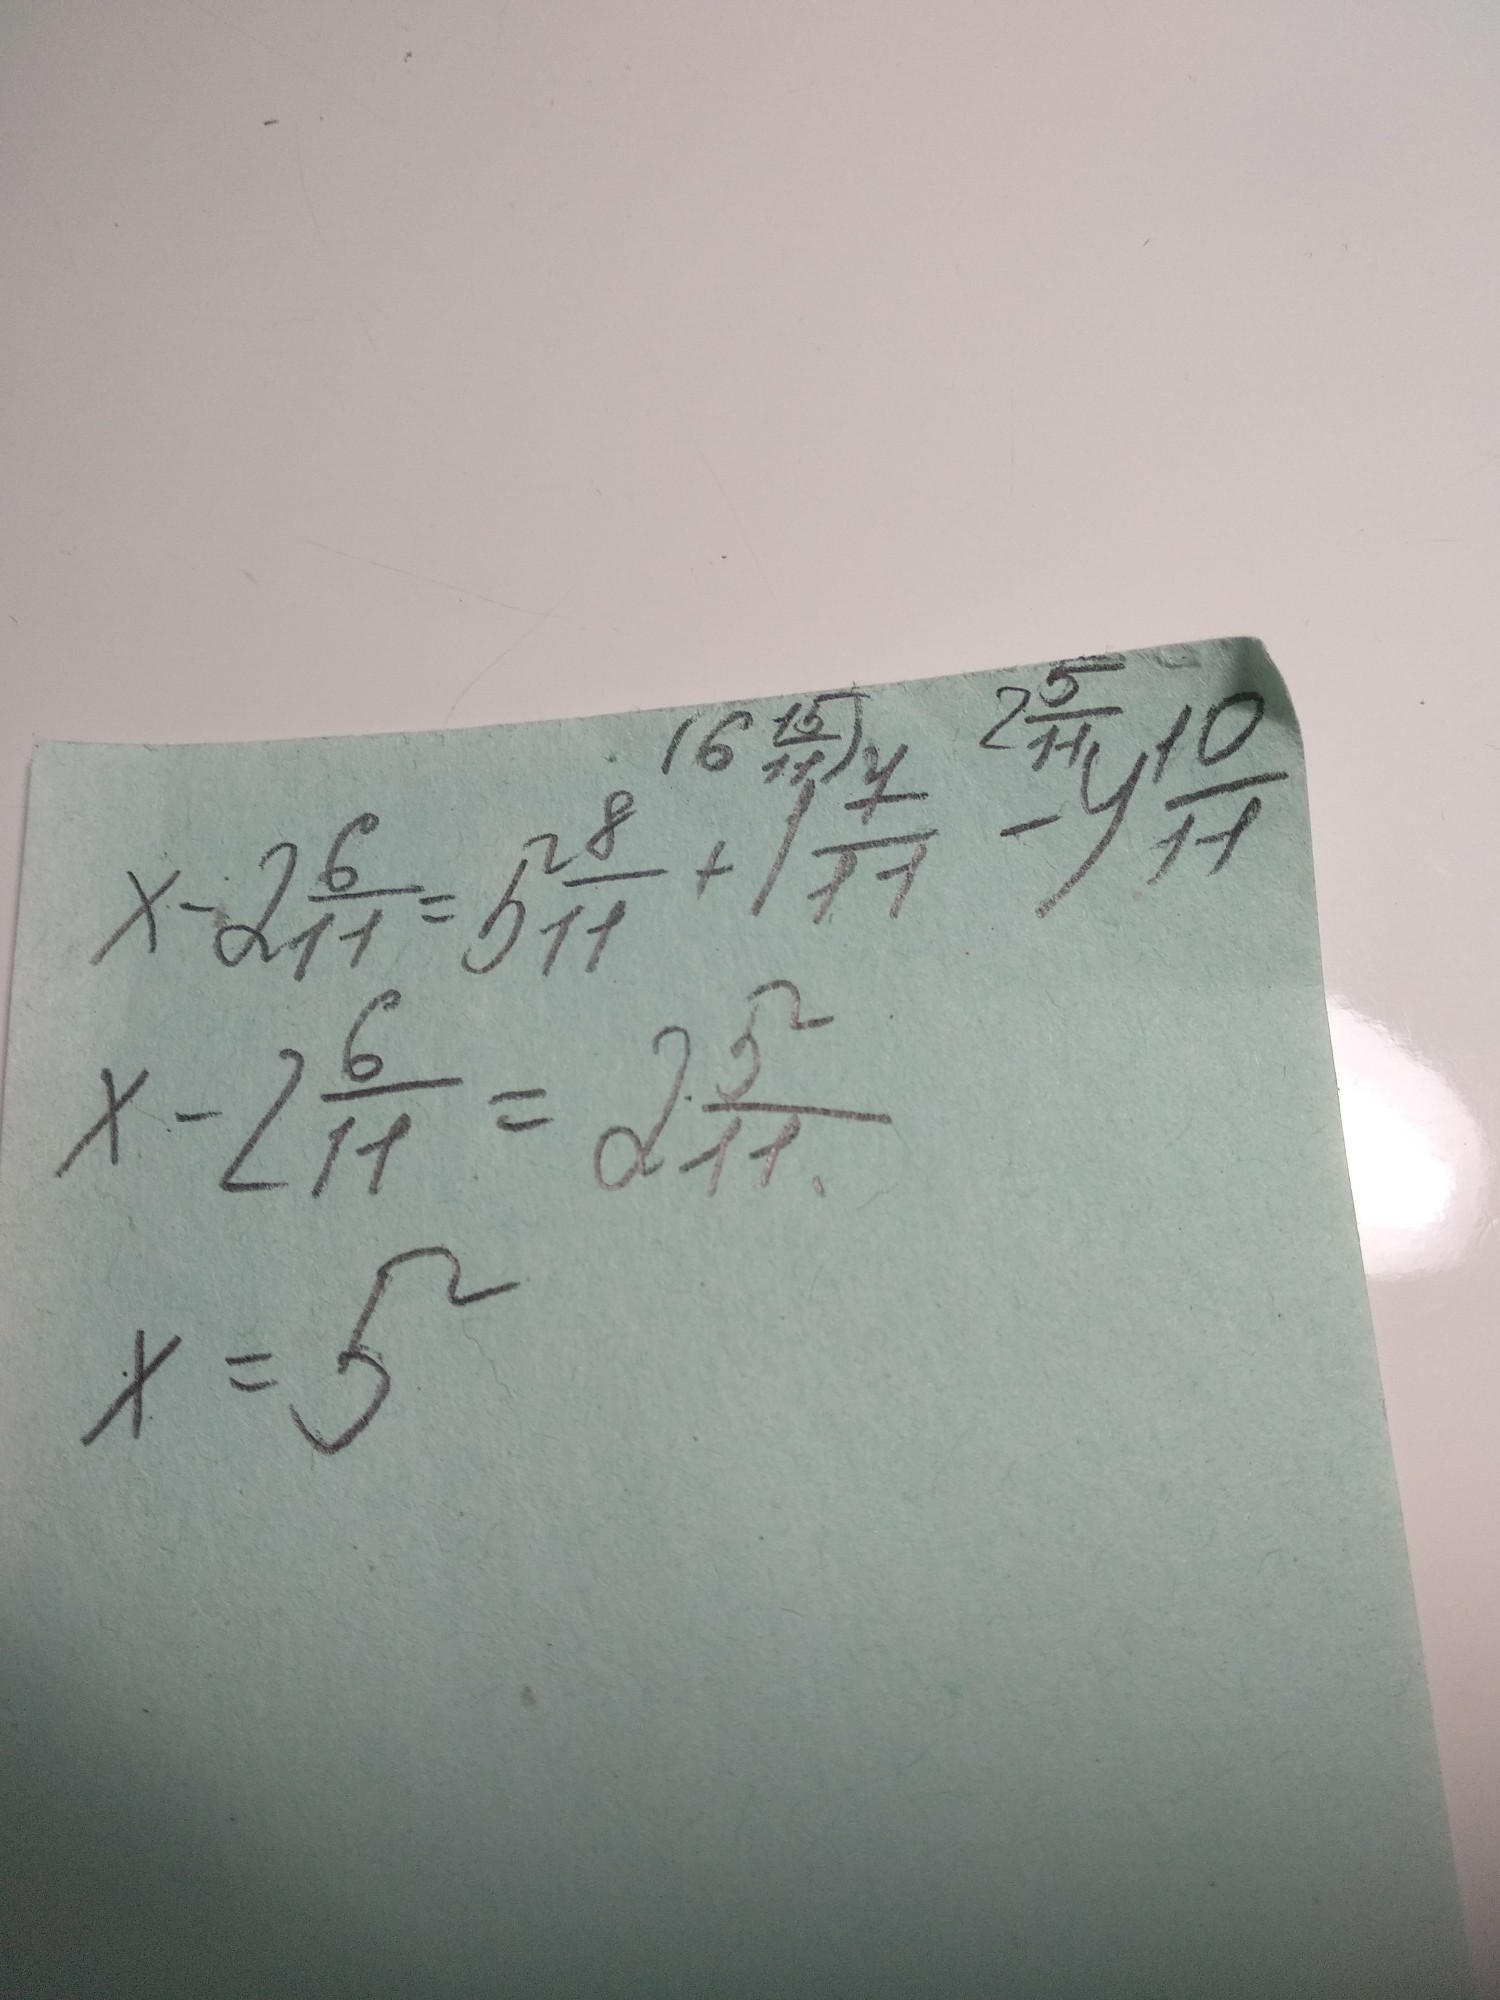 (6 15/11) 2 5/11
x - 2 6/11 = 5 8/11 + 1 7/11 - 4 10/11
x - 2 6/11 = 2 5/11.
x = 5